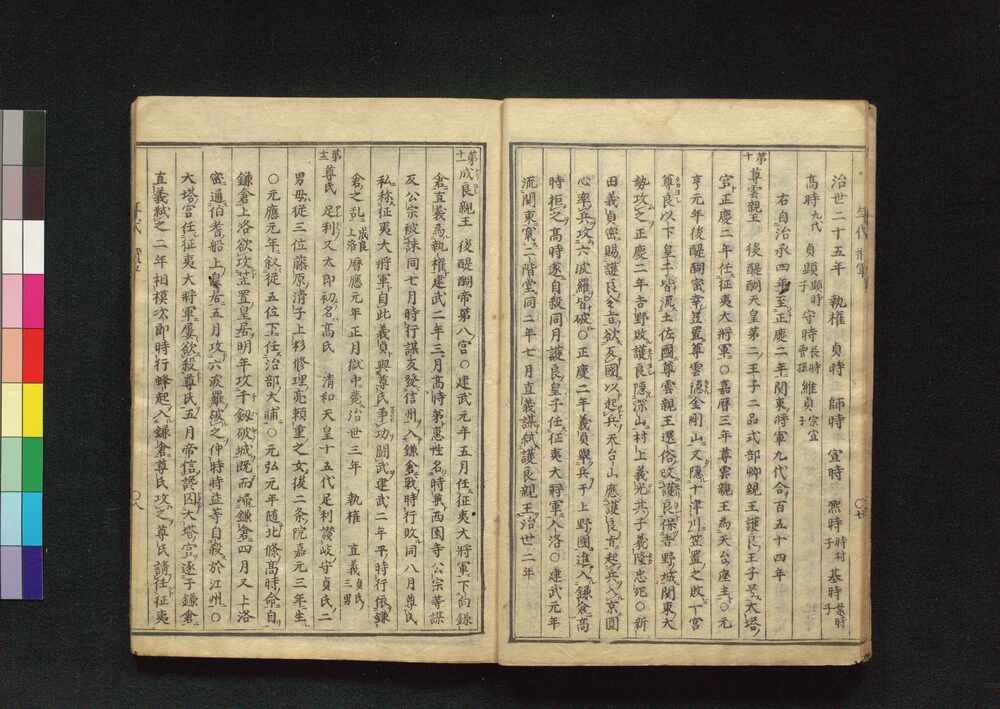 治世二十五年 執権 貞時 師時 宣時 熈時時村子 基時業時子
高時九代 貞顕顕時子 守時長時曽孫 維貞宗宣子
右自治承四年至正慶二年関東将軍九代合百五十四年
第十 尊雲親王 後醍醐天皇第二ノ王子二品式部卿親王護良王子号大塔ノ
宮正慶二年任征夷大将軍○嘉暦三年尊雲親王為天台座主○元
亨元年後醍醐蜜幸笠置尊雲徳金剛山又隠十津川笠置之敗一宮
尊良以下皇子皆流土佐國尊雲親王還俗改護良保吉野城関東大
勢攻之正慶二年吉野敗護良隠深山村上義光共子義隆忠死○新
田義貞密賜護良令旨欲友國以起兵天台山應護良旨起兵入京圓
心率兵攻六波羅皆破○正慶二年義貞擧兵于上野國進入鎌倉高
時拒之高時遂自殺同月護良皇子任征夷大将軍入洛○建武元年
流関東窂二階堂同二年七月直義謀弑護良親王治世二年
第十一 成良親王 後醍醐帝第八宮○建武元年五月任征夷大将軍下向鎌
倉直義為執権建武二年三月高時第恵性名時興西園寺公宗等謀
反公宗被誅同七月時行謀友發信州入鎌倉戦時行敗同八月尊氏
私称征夷大将軍自此義貞與尊氏争功闘武建武二年平時行依鎌
倉之乱成良上洛暦應元年正月獄中薨治世三年 執権 直義貞氏三男
第十二 尊氏 足利又太郎初名高氏 清和天皇十五代足利讃岐守貞氏二
男母従三位藤原清子上杉修理亮頼重之女後二条院嘉元三年生
○元應元年叙従五位下任治部大輔○元弘元年随北條高時命自
鎌倉上洛欲攻笠置皇居明年攻千釼破城既而帰鎌倉四月又上洛
密通伯耆船上皇居五月攻六波羅破之仲時時益等自殺於江州○
大塔宮任征夷大将軍屡欲殺尊氏五月帝信讒囚大塔宮逐于鎌倉
直義弑之二年相模次郎時行蜂起入鎌倉尊氏攻之尊氏請任征夷